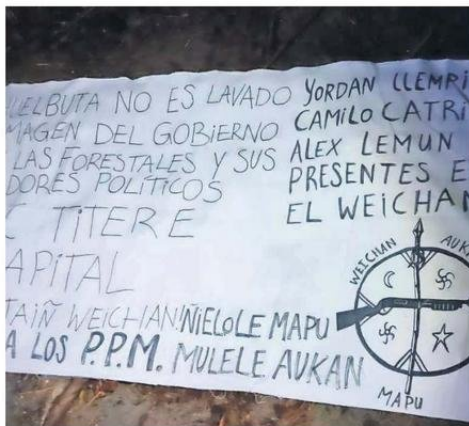 UELBUTA NO ES LAVADO
MAGEN DEL GOBIERNO
LAS FORESTALES Y SUS
DORES POLíTICOS
TiTERE
APITAL
TAIÑ WEICHAN ÑIELOLE MAPU
A LOS P.P.M. MULELE AUKAN
YORDAN LLEMPI
CAMILO CATRI
ALEX LEMUN
PRESENTES E
EL WEICHAN
WEICHAN
AUKA
MAPU